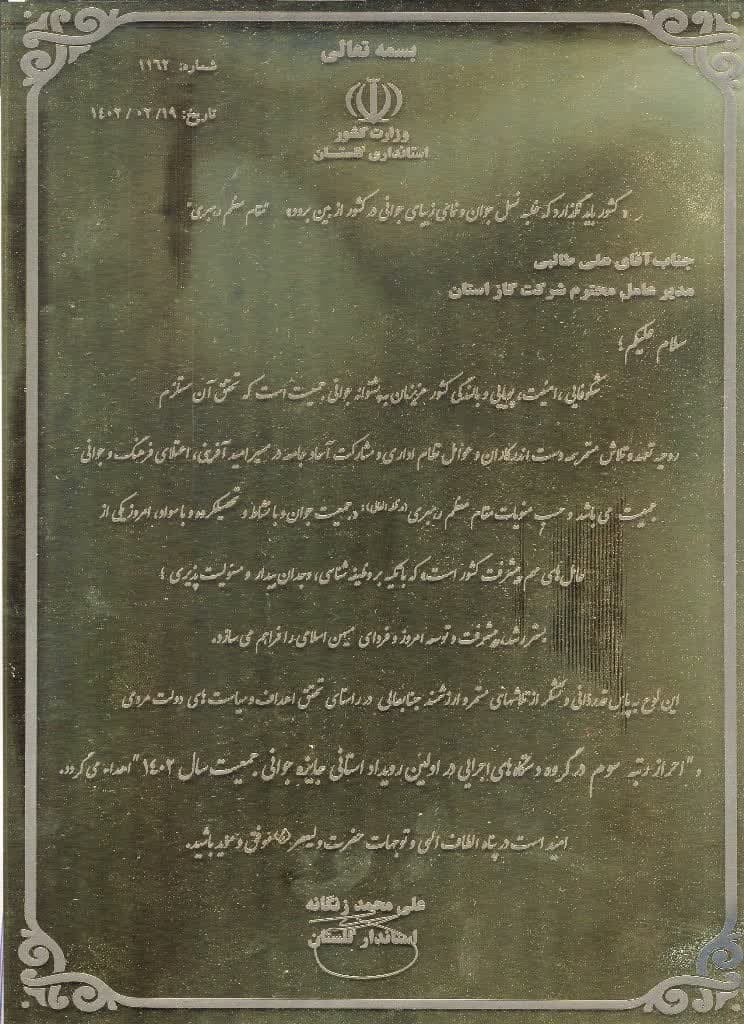 بسمه تعالی
شماره: ۱۱۶۲
تاریخ: ۱۴۰۳/۰۲/۱۹
وزارت کشور
استانداری گلستان
« کشور باید نگذارد که غلبه نسل جوان و نمای زیبای جوانی در کشور از بین برود» "مقام معظم رهبری"
جناب آقای علی طالبی
مدیر عامل محترم شرکت گاز استان
سلام علیکم؛
شکوفایی، امنیت، پویایی و بالندگی کشور عزیزمان به پشتوانه جوانی جمعیت است که تحقق آن مستلزم
روحیه تعهد و تلاش مستمر همه دست اندرکاران و عوامل نظام اداری و مشارکت آحاد جامعه در مسیر امید آفرینی، اعتلای فرهنگ و جوانی
جمعیت می باشد و حسب منویات مقام معظم رهبری (مدظله العالی): «جمعیت جوان و با نشاط و تحصیلکرده و با سواد، امروز یکی از
عامل های مهم پیشرفت کشور است» که با تکیه بر وظیفه شناسی، وجدان بیدار و مسئولیت پذیری ؛
بستر رشد، پیشرفت و توسعه امروز و فردای میهن اسلامی را فراهم می سازد.
این لوح به پاس قدردانی و تشکر از تلاشهای مستمر و ارزشمند جنابعالی در راستای تحقق اهداف و سیاست های دولت مردمی
و "احراز رتبه سوم در گروه دستگاه های اجرایی در اولین رویداد استانی جایزه جوانی جمعیت سال ۱۴۰۲" اهداء می گردد.
امید است در پناه الطاف الهی و توجهات حضرت ولیعصر (عج) موفق و موید باشید.
علی محمد زنگانه
استاندار گلستان